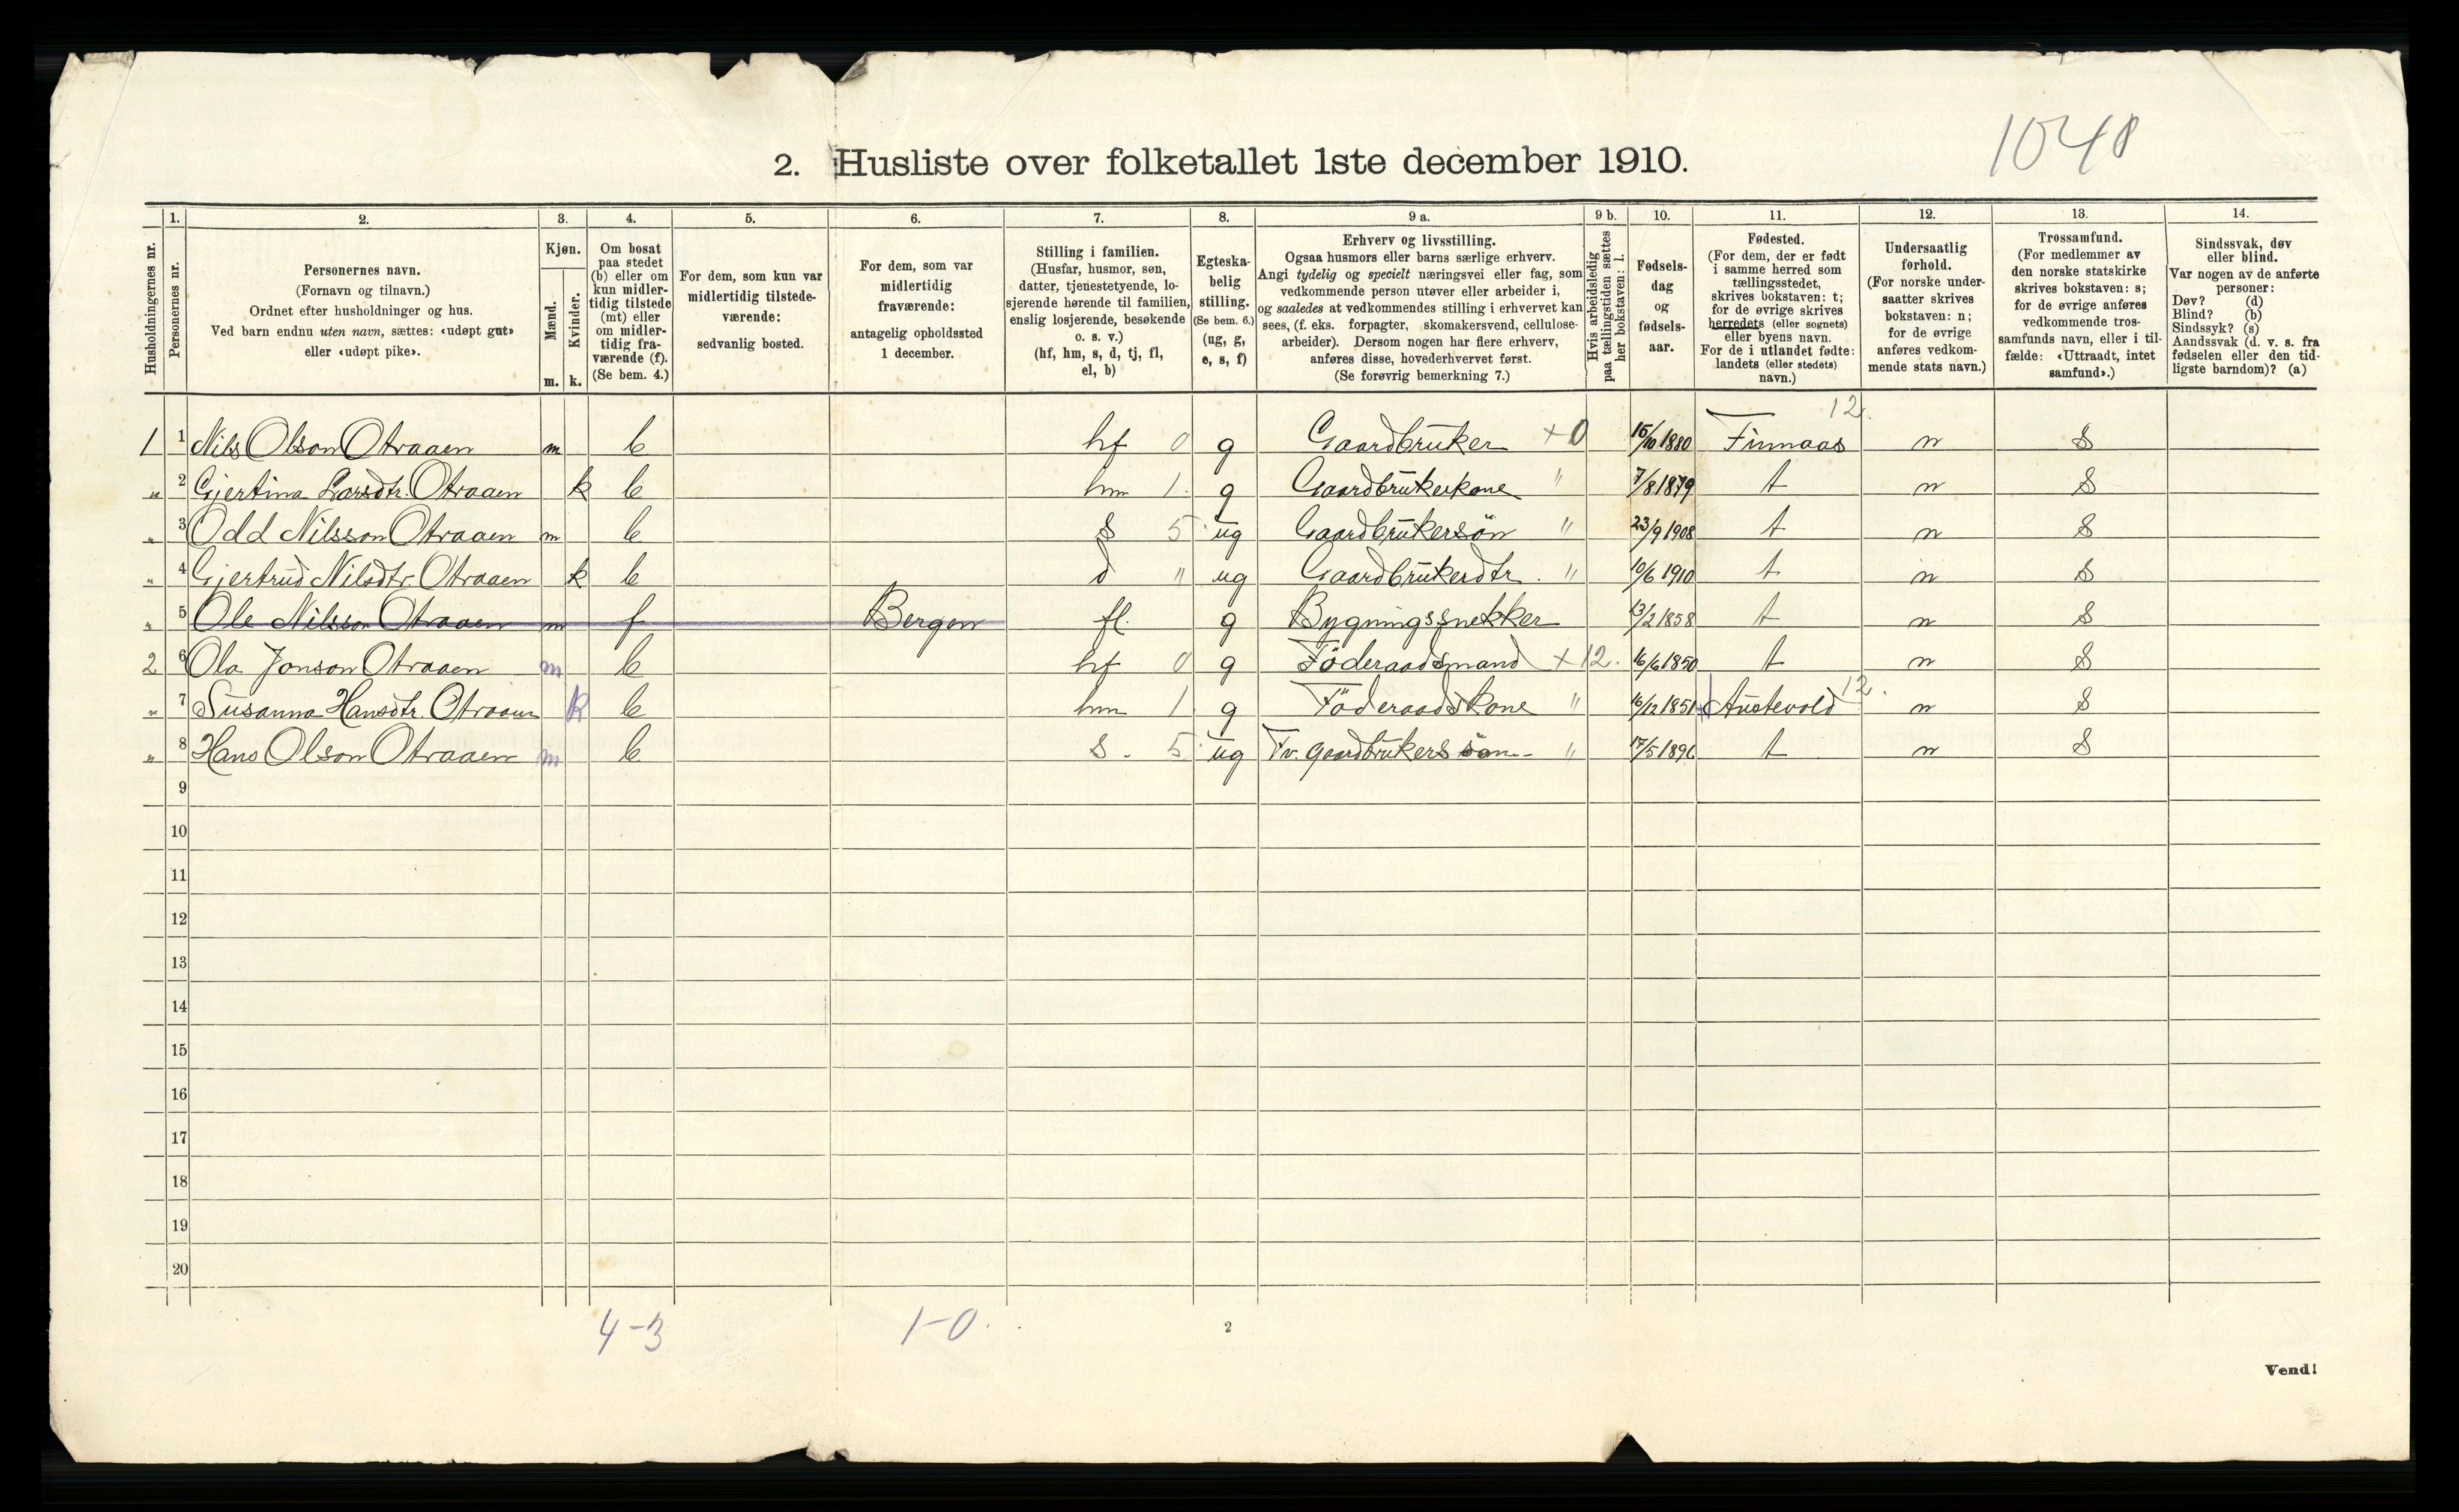 1048
2. Husliste over folketallet 1ste december 1910.
Husholdningernes nr.
1.
Personernes nr.
2.
Personernes navn.
(Fornavn og tilnavn.)
Ordnet efter husholdninger og hus.
Ved barn endnu uten navn, sættes: «udøpt gut»
eller «udøpt pike».
3.
Kjøn.
Mænd.
Kvinder.
m. k.
4.
Om bosat
paa stedet
(b) eller om
kun midler-
tidig tilstede
(mt) eller
om midler-
tidig fra-
værende (f).
(Se bem. 4.)
5.
For dem, som kun var
midlertidig tilstede-
værende:
sedvanlig bosted.
6.
For dem, som var
midlertidig
fraværende:
antagelig opholdssted
1 december.
7.
Stilling i familien.
(Husfar, husmor, søn,
datter, tjenestetyende, lo-
sjerende hørende til familien,
enslig losjerende, besøkende
o. s. v.)
(hf, hm, s, d, tj, fl,
el, b)
8.
Egteska-
belig
stilling.
(Se bem. 6.)
(ug, g,
e, s, f)
9 a.
Erhverv og livsstilling.
Ogsaa husmors eller barns særlige erhverv.
Angi tydelig og specielt næringsvei eller fag, som
vedkommende person utøver eller arbeider i,
og saaledes at vedkommendes stilling i erhvervet kan
sees, (f. eks. forpagter, skomakersvend, cellulose-
arbeider). Dersom nogen har flere erhverv,
anføres disse, hovederhvervet først.
(Se forøvrig bemerkning 7.)
9 b.
Hvis arbeidsledig
paa tællingstiden sættes
her bokstaven: l.
10.
Fødsels-
dag
og
fødsels-
aar.
11.
Fødested.
(For dem, der er født
i samme herred som
tællingsstedet,
skrives bokstaven: t;
for de øvrige skrives
herredets (eller sognets)
eller byens navn.
For de i utlandet fødte:
landets (eller stedets)
navn.)
12.
Undersaatlig
forhold.
(For norske under-
saatter skrives
bokstaven: n;
for de øvrige
anføres vedkom-
mende stats navn.)
13.
Trossamfund.
(For medlemmer av
den norske statskirke
skrives bokstaven: s;
for de øvrige anføres
vedkommende tros-
samfunds navn, eller i til-
fælde: «Uttraadt, intet
samfund».)
14.
Sindssvak, døv
eller blind.
Var nogen av de anførte
personer:
Døv? (d)
Blind? (b)
Sindssyk? (s)
Aandssvak (d. v. s. fra
fødselen eller den tid-
ligste barndom)? (a)
12.
1 1 Nils Olson Otraaen m b hf 0 g Gaardbruker + 0 15/10 1880 Finnaas n S
" 2 Gjertina Larsdtr. Otraaen k b hm 1. g Gaardbrukerkone " 7/8 1879 t n S
" 3 Odd Nilsson Otraaen m b s 5. ug Gaardbrukersön " 23/9 1908 t n S
" 4 Gjertrud Nilsdtr. Otraaen k b d " ug Gaardbrukerdtr. " 10/6 1910 t n S
" 5 Ole Nilsson Otraaen m f Bergen fl. g Bygningssnekker 13/2 1858 t n S
2 6 Ola Jonson Otraaen m b hf 0 g Föderaadsmand + 12. 16/6 1850 t n S
12.
" 7 Susanna Hansdtr. Otraaen k b hm 1. g Föderaadskone " 16/12 1851 Austevold n S
" 8 Hans Olson Otraaen m b s. 5. ug Fv. gaardbrukers sön " 17/5 1896 t n S
9
10
11
12
13
14
15
16
17
18
19
20
4-3 1-0.
2
Vend!